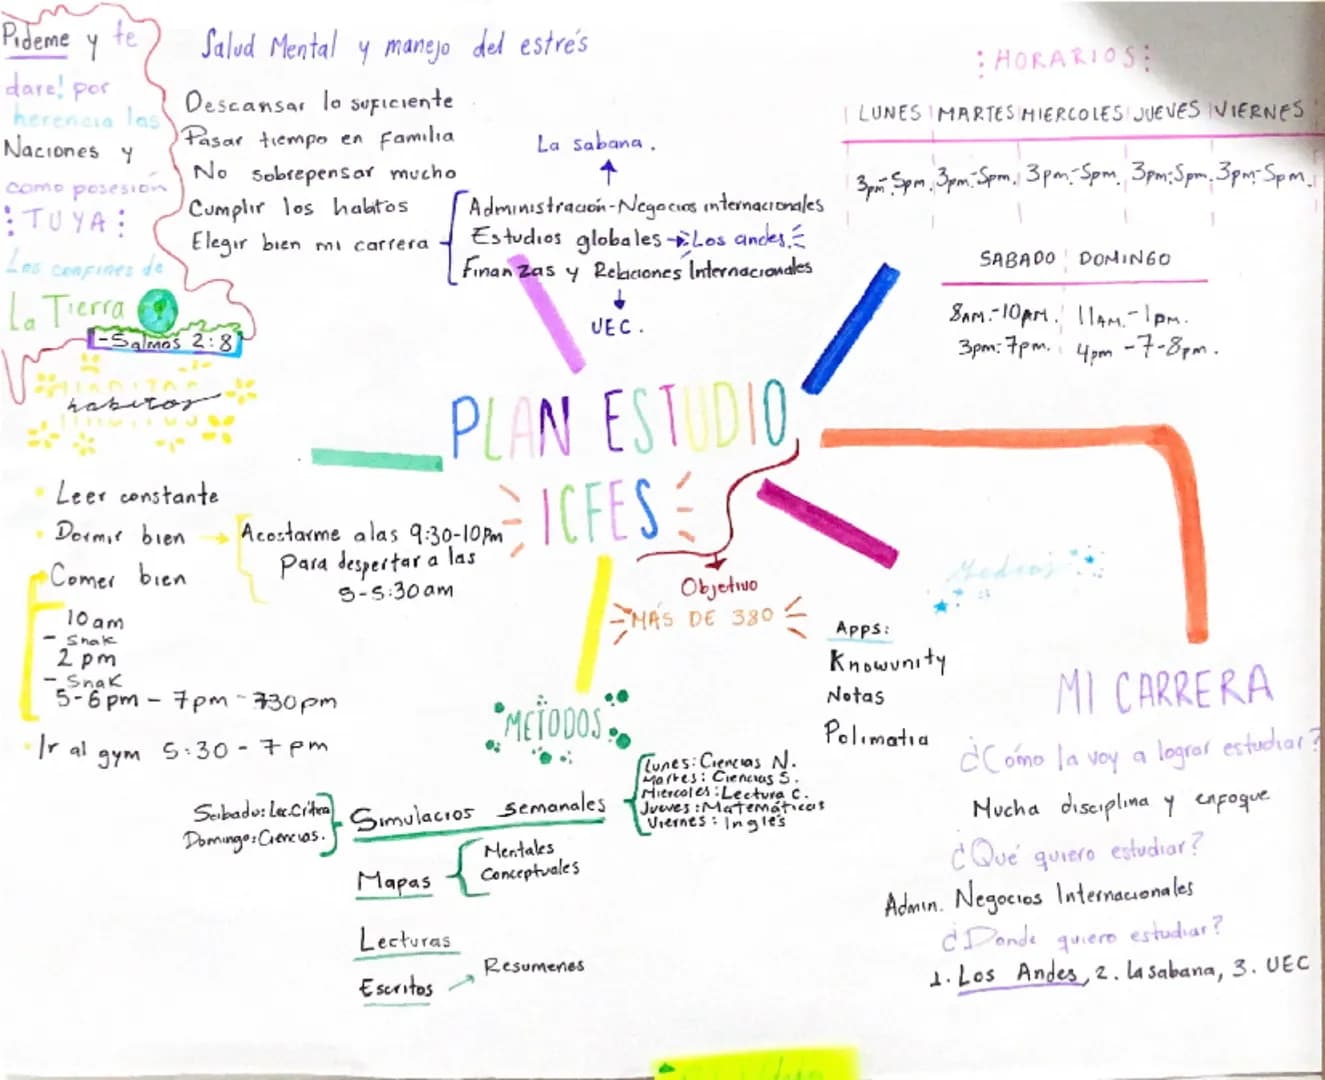 Pideme y te
dare! por
herencia las
Naciones y
como posesión
TUYA
Los confines de
La Tierra
-Salmos 2:8
Salud Mental y manejo del estrés
Descansar lo suficiente
Pasar tiempo en familia
No sobrepensar mucho
Cumplir los habitos
Elegir bien mi carrera
La sabana.
Administración-Negocios internacionales
Estudios globales → Los andes.
Finanzas y Relaciones Internacionales
UEC.
:HORARIOS:
LUNES MARTES MIERCOLES JUEVES VIERNES
3pm-5pm. 3pm-5pm. 3pm-5pm. 3pm-5pm. 3pm-5pm.
SABADO DOMINGO
8AM.-10AM. 11AM.-1pm.
3pm-7pm. 4pm-7-8pm.
PLAN ESTUDIO
ICFES
Objetivo
MÁS DE 380
habitos
Leer constante
Dormir bien → Acostarme a las 9:30-10pm
Para despertar a las
5-5:30am
Comer bien
10am
- Snak
2 pm
- Snak
5-6pm - 7pm - 730pm
Ir al gym 5:30 - 7 pm
METODOS
Simulacros semanales
Sabado: Lec.Crítica
Domingo: Ciencias.
Lunes: Ciencias N.
Martes: Ciencias S.
Miercoles: Lectura C.
Jueves: Matemáticas
Viernes: Inglés
Mapas
Mentales
Conceptuales
Lecturas
Escritos → Resumenes
Medios
Apps:
Knowunity
Notas
Polimatia
MI CARRERA
¿Cómo la voy a lograr estudiar?
Mucha disciplina y enfoque
¿Qué quiero estudiar?
Admin. Negocios Internacionales
¿Donde quiero estudiar?
1. Los Andes, 2. La sabana, 3. UEC